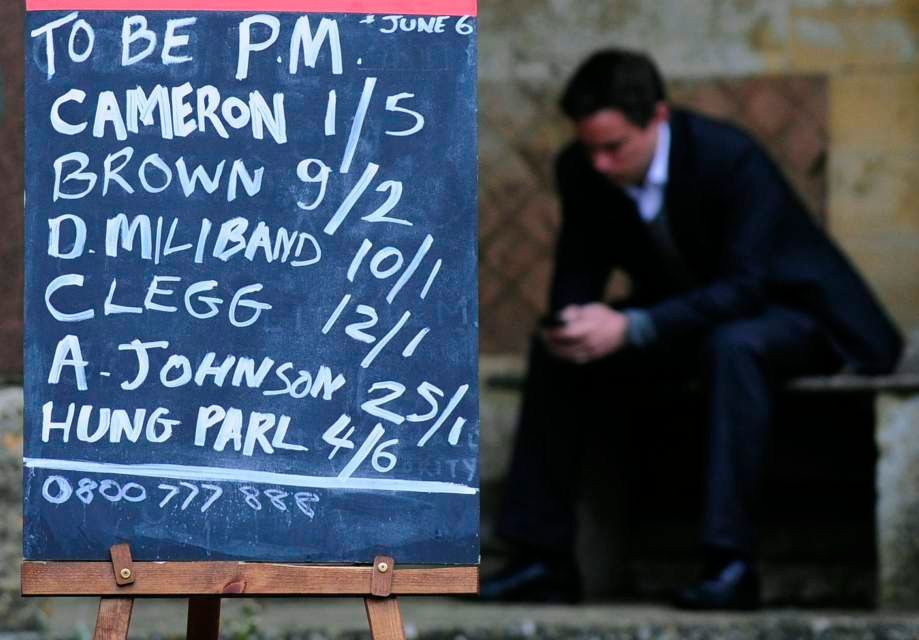 TO BE P.M. JUNE 6
CAMERON 1/5
BROWN 9/2
D. MILIBAND 10/1
CLEGG 12/1
A. JOHNSON 25/1
HUNG PARL 4/6
0800 777 888